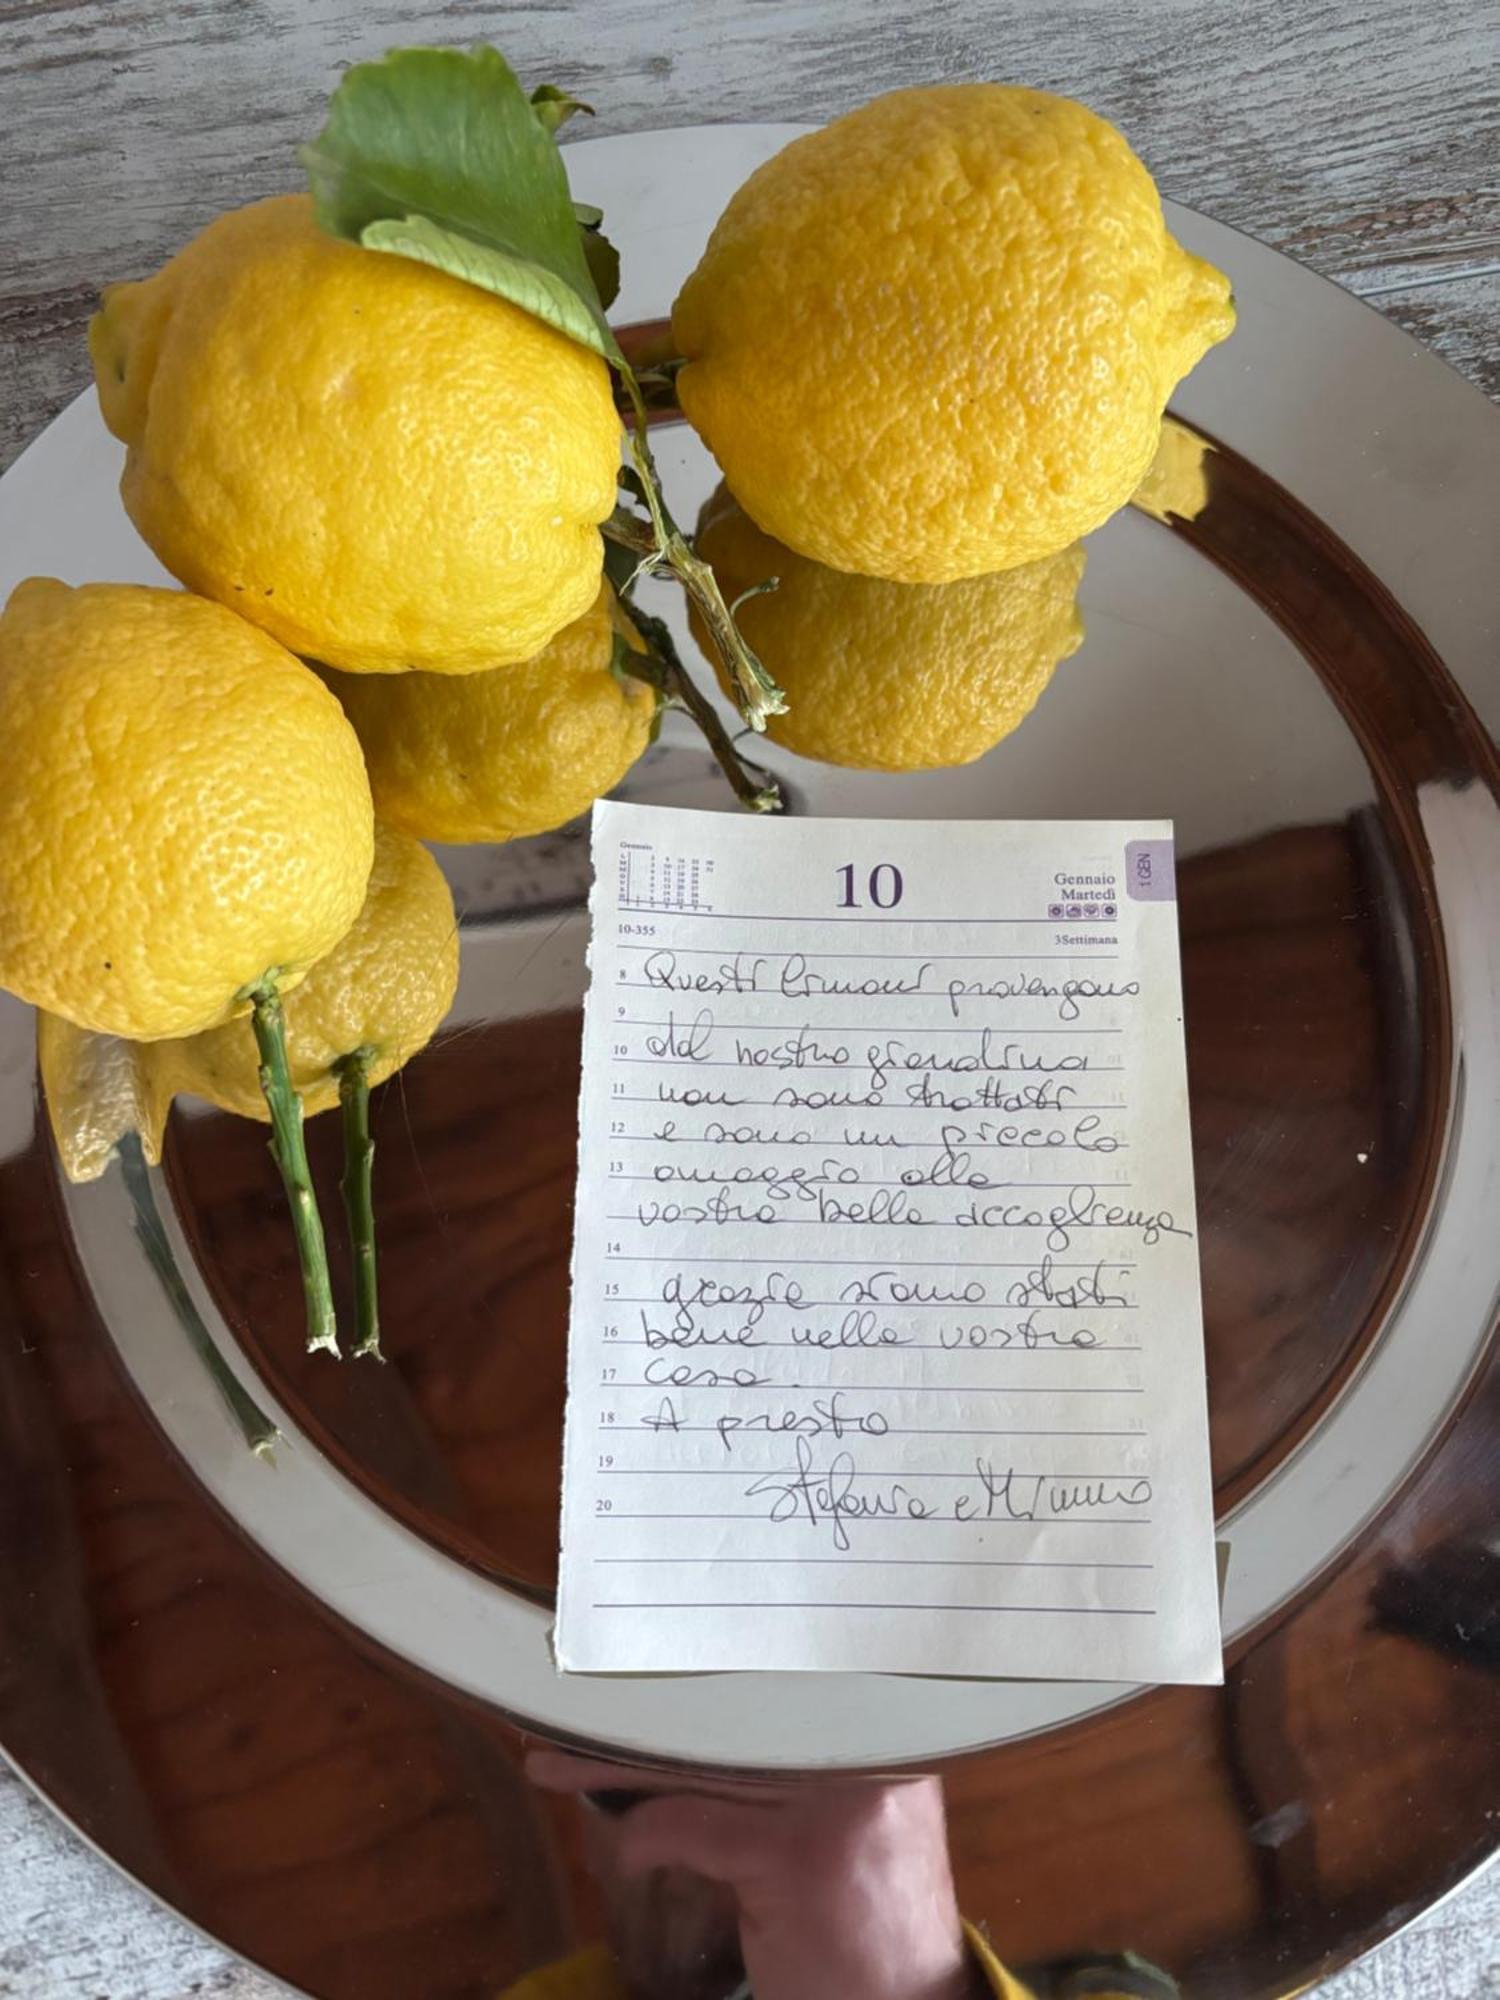 Gennaio
10
Gennaio
Martedì
1 GEN
10-355
3 Settimana
8 Questi limoni provengono
9
10 dal nostro giardino
11 non sono trattati
12 e sono un piccolo
13 omaggio alla
vostra bella accoglienza
14
15 grazie siamo stati
16 bene nella vostra
17 casa.
18 A presto
19
20 Stefania e Mimmo